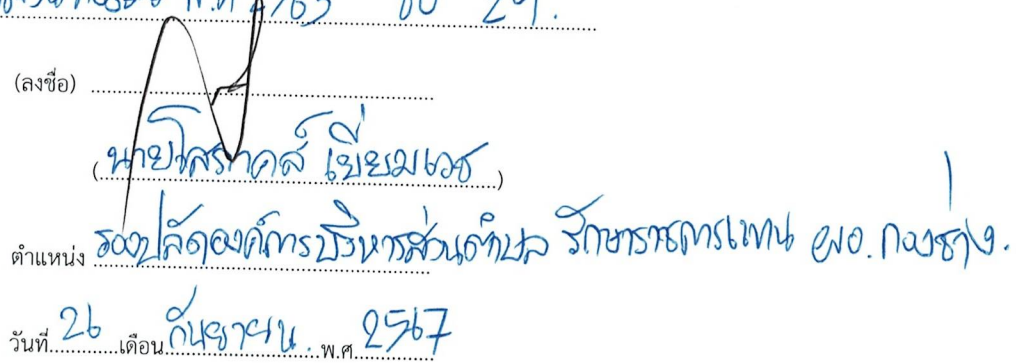 พ.ศ. 2563 ข้อ 29.
(ลงชื่อ)
(นายโสภาคส์ เยี่ยมเวช)
ตำแหน่ง รองปลัดองค์การบริหารส่วนตำบล รักษาราชการแทน ผอ.กองช่าง.
วันที่ 26 เดือน กันยายน. พ.ศ. 2567